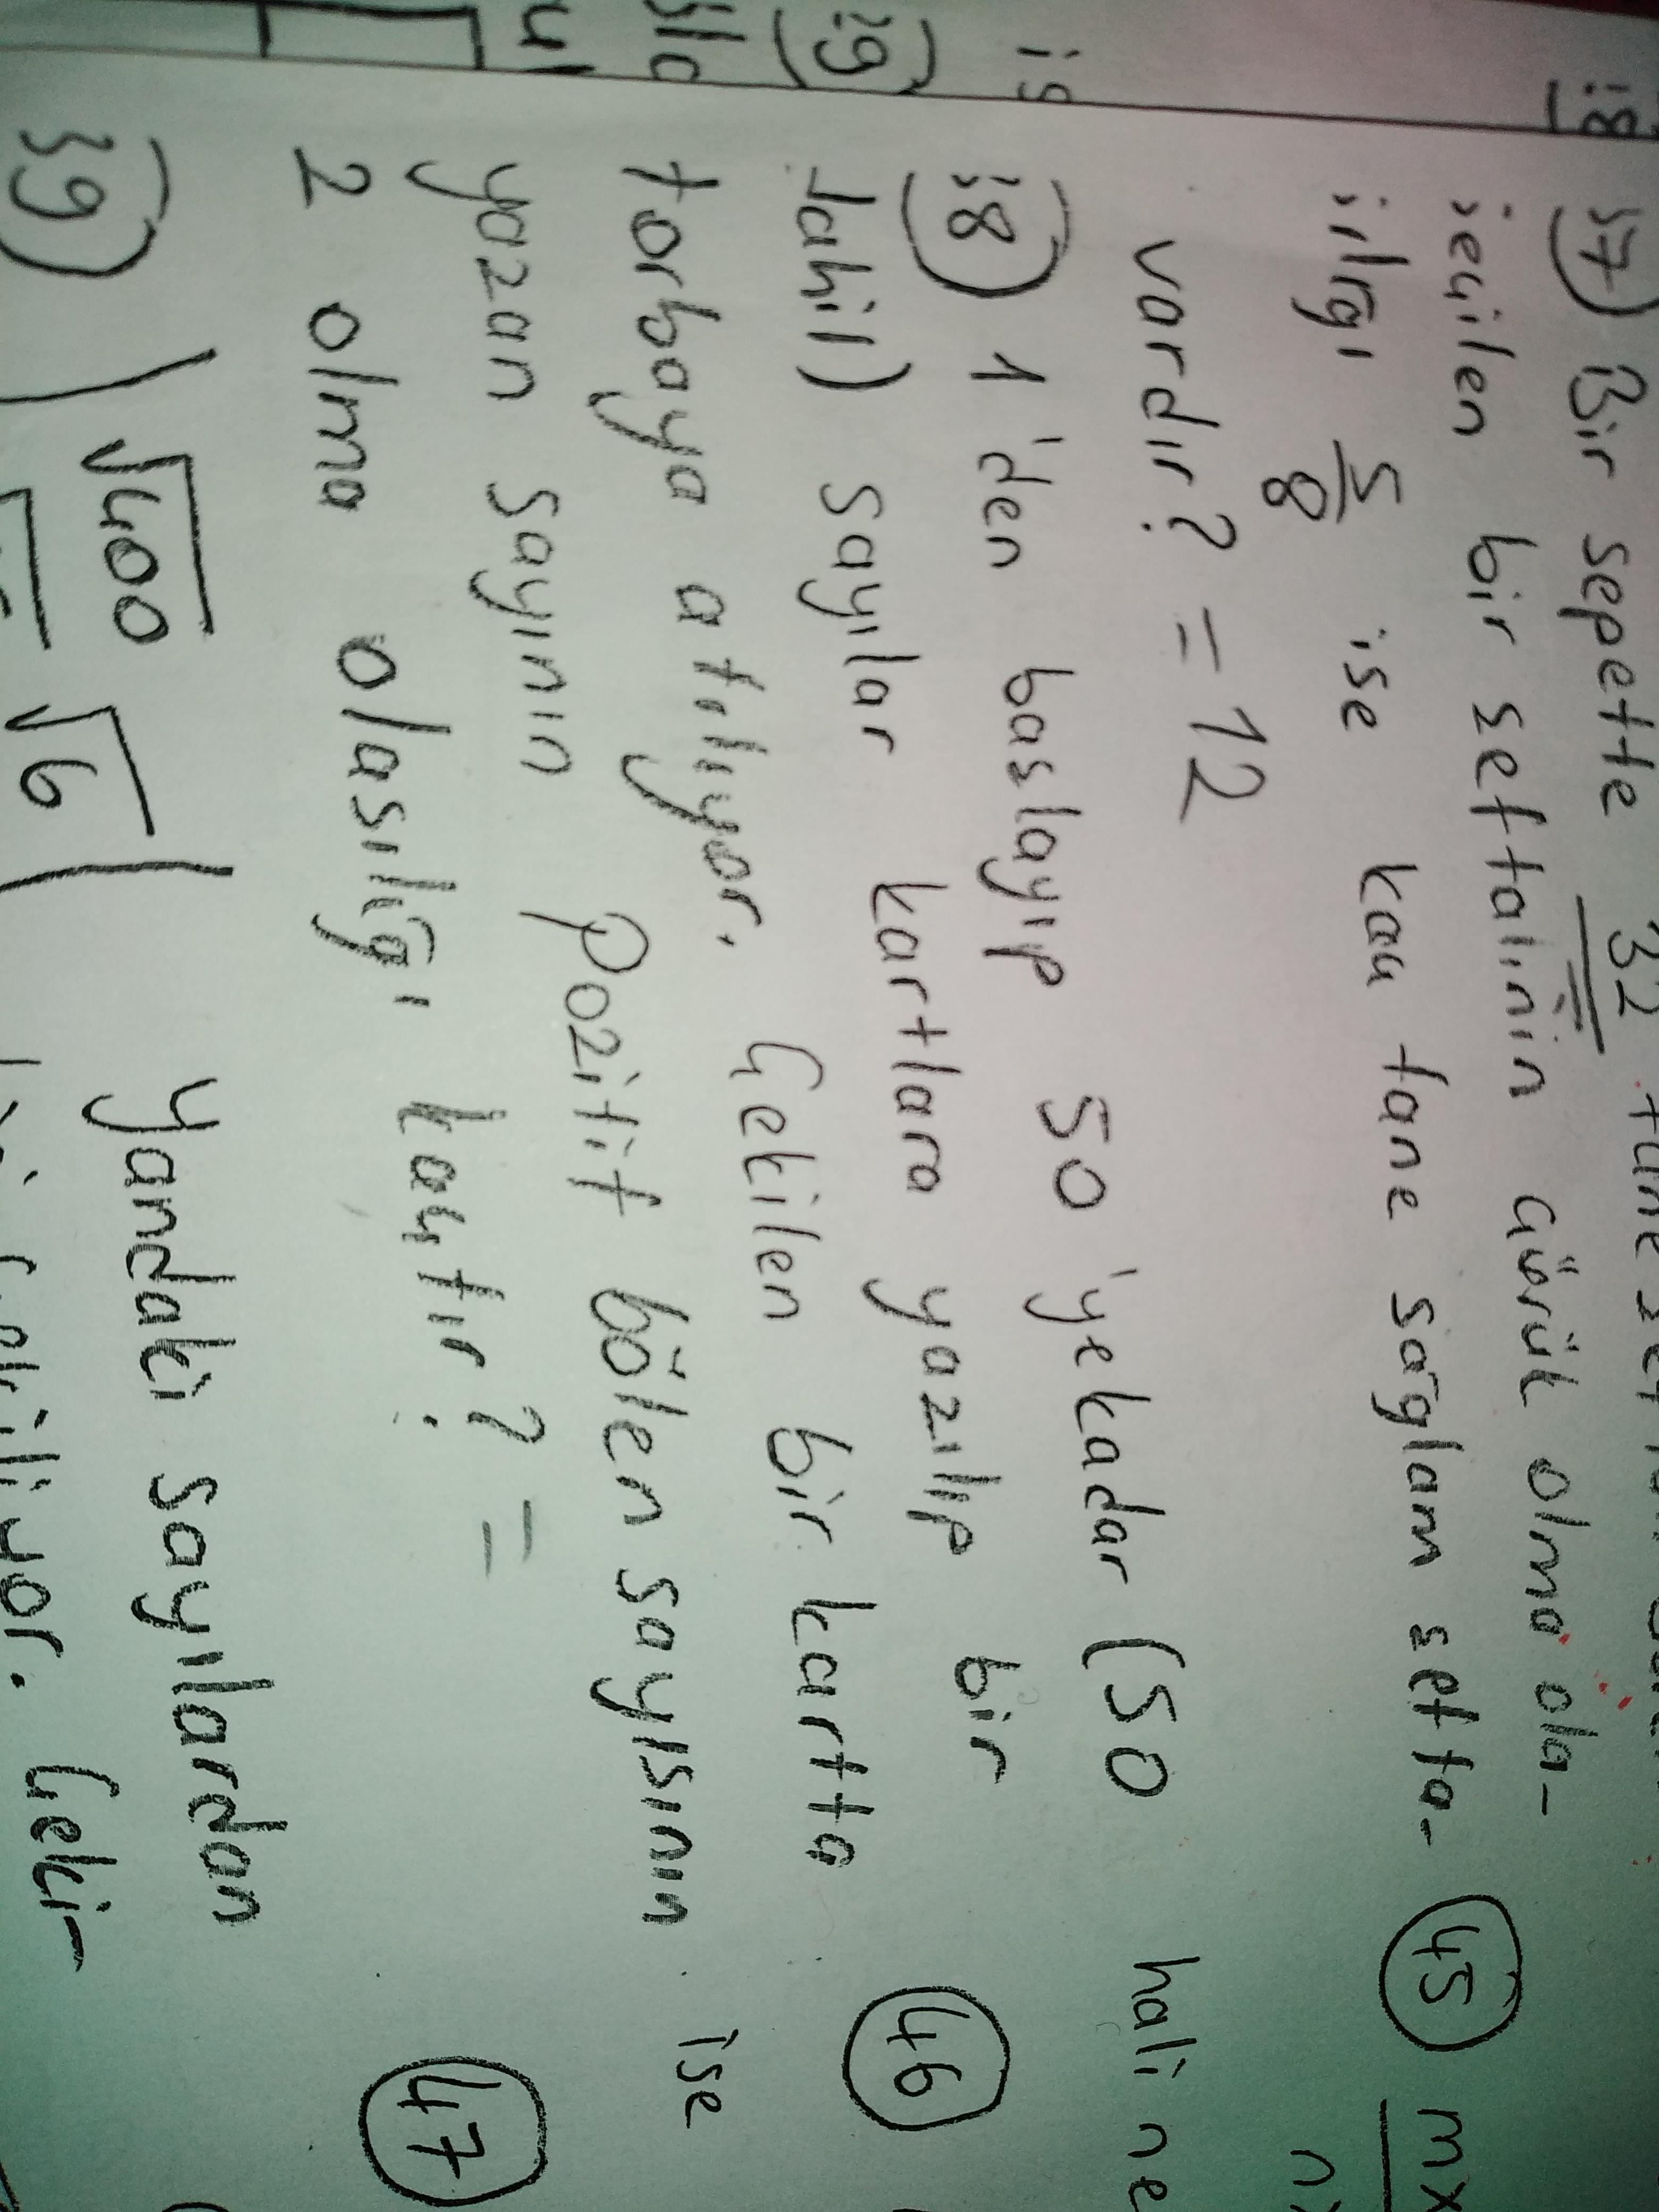 37) Bir sepette 32 tane
seçilen bir şeftalinin çürük olma ola-
sılığı 5/8 ise kaç tane sağlam şefta-
vardır? = 12
38) 1'den başlayıp 50'ye kadar (50
dahil) sayılar kartlara yazılıp bir
torbaya atılıyor. Çekilen bir kartta
yazan sayının pozitif bölen sayısının
2 olma olasılığı kaçtır? =
39) √400 √6 yandaki sayılardan
Çeki-
45
mx
haline
46
ise
47